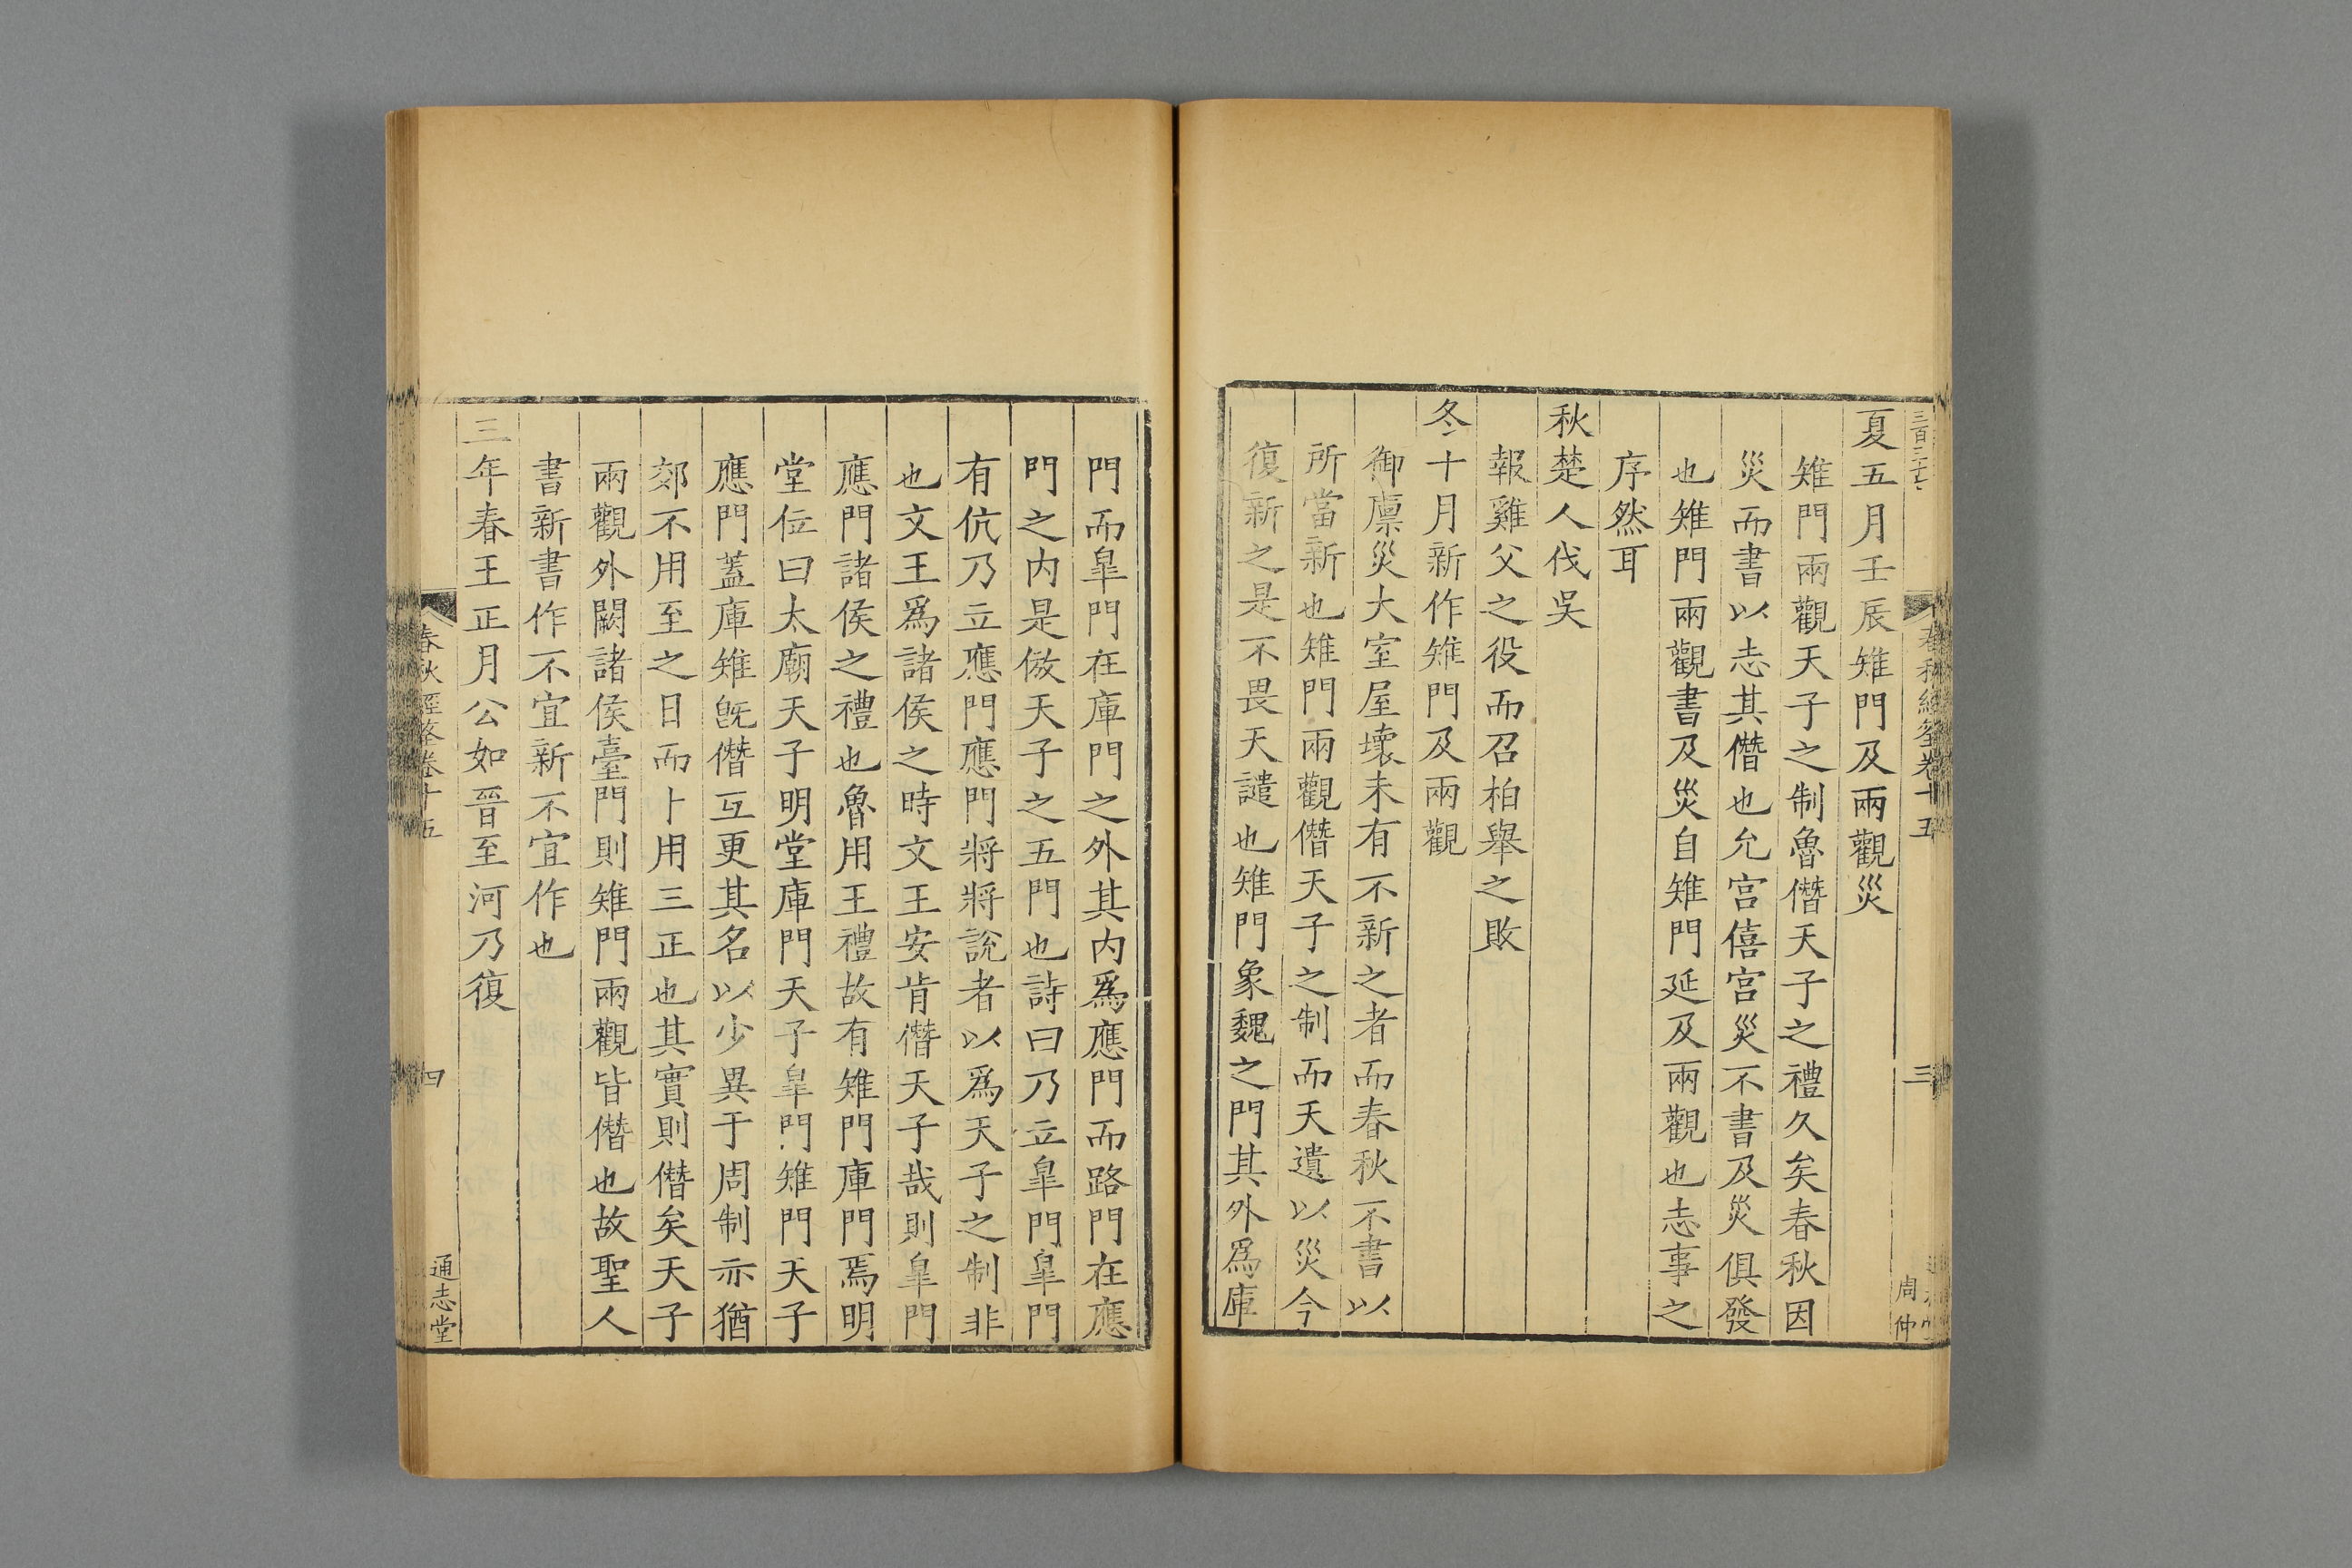 夏五月壬辰雉門及兩觀災
雉門兩觀天子之制魯僭天子之禮久矣春秋因
災而書以志其僭也允宫僖宫災不書及災俱發
也雉門兩觀書及災自雉門延及兩觀也志事之
序然耳
秋楚人伐吳
報雞父之役而召柏舉之敗
冬十月新作雉門及兩觀
御廩災大室屋壞未有不新之者而春秋不書以
所當新也雉門兩觀僭天子之制而天遺以災今
復新之是不畏天譴也雉門象魏之門其外爲庫
門而皐門在庫門之外其内爲應門而路門在應
門之内是倣天子之五門也詩曰乃立皐門皐門
有伉乃立應門應門將將說者以爲天子之制非
也文王爲諸侯之時文王安肯僭天子哉則皐門
應門諸侯之禮也魯用王禮故有雉門庫門焉明
堂位曰太廟天子明堂庫門天子皐門雉門天子
應門蓋庫雉旣僭互更其名以少異于周制示猶
郊不用至之日而卜用三正也其實則僭矣天子
兩觀外闕諸侯臺門則雉門兩觀皆僭也故聖人
書新書作不宜新不宜作也
三年春王正月公如晉至河乃復
春秋經筌卷十五
四
通志堂
三
周仲